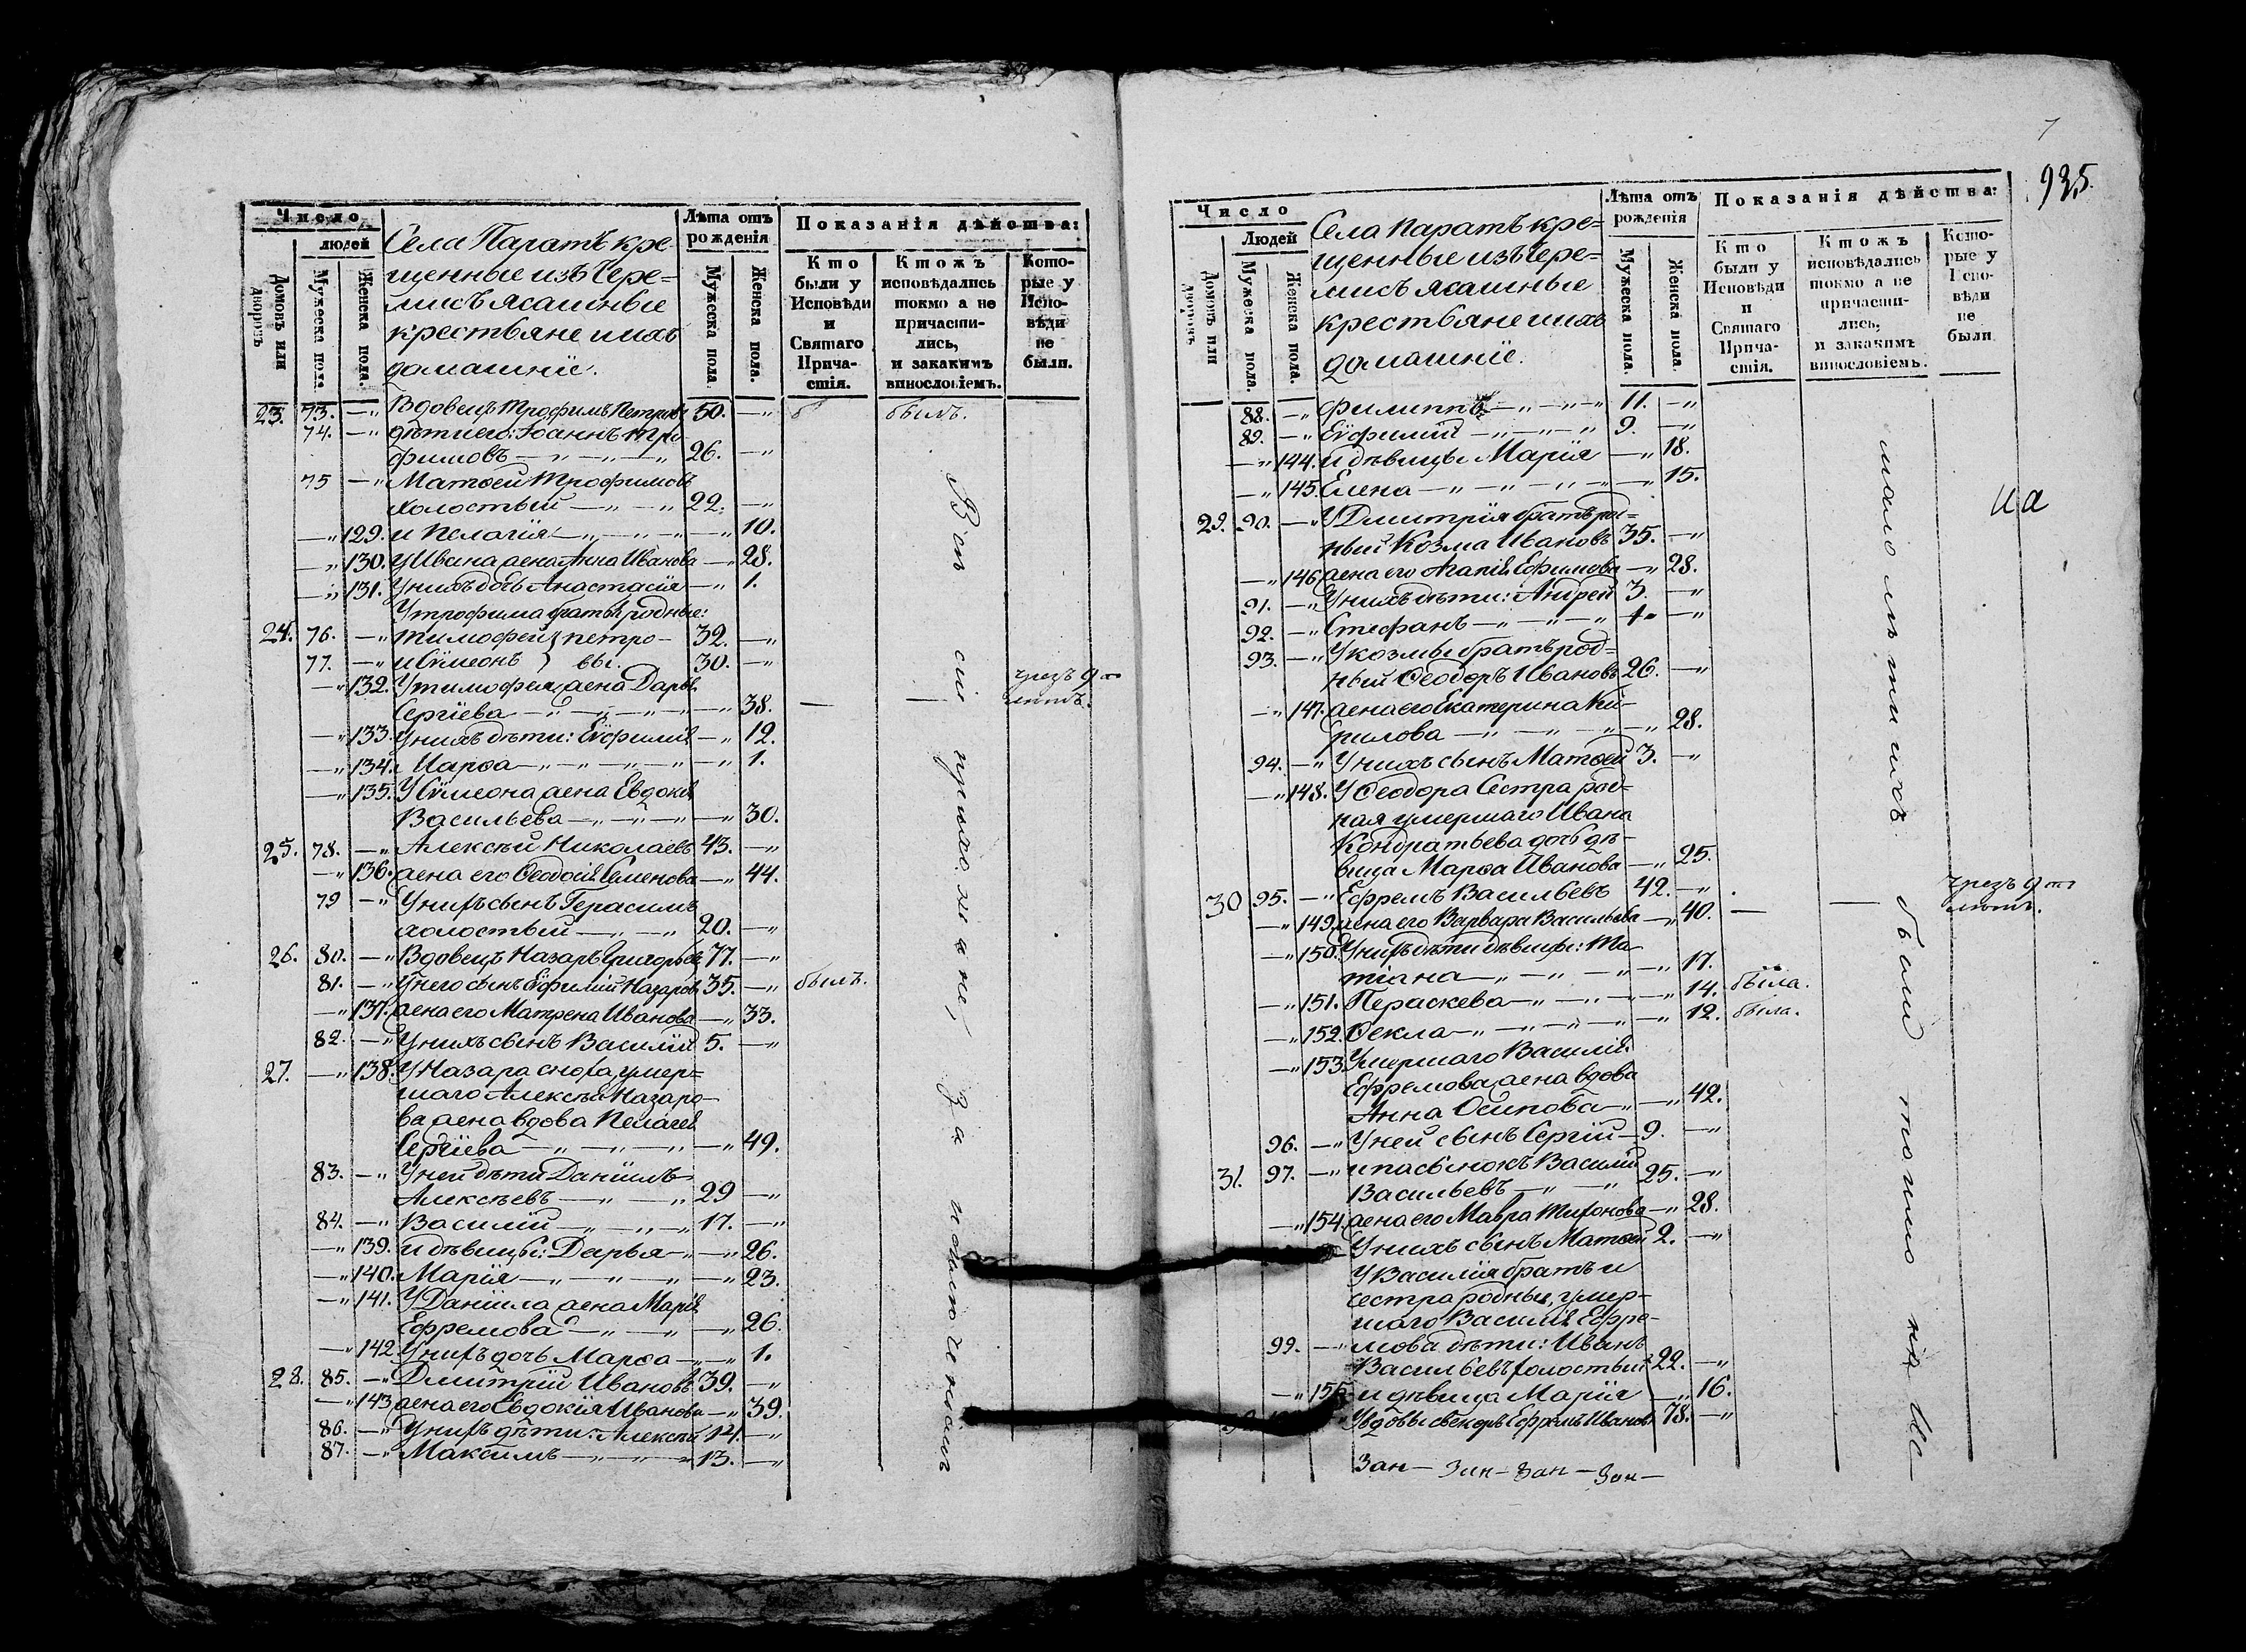 Число
людей
Домовъ или дворовъ
Мужеска пола.
Женска пола.
Села Паратъ кре-
щенные изъ Чере=
мисъ ясашные
крестьяне и ихъ
домашніе.
Лѣта отъ
рожденія
Мужеска пола.
Женска пола.
Показанія дѣйства:
Кто
были у
Исповѣди
и
Святаго
Прича-
стія.
Ктожъ
исповѣдались
токмо а не
причасти-
лись,
и закакимъ
винословіемъ.
Кото-
рые у
Испо-
вѣди
не
были.
23. 73. —„ Вдовецъ Трофимъ Петровъ 50. —„ былъ.
74. —„ дѣти его: Іоаннъ Тро
фимовъ —„ —„ —„ 26. —„
75 —„ Матѳей Трофимовъ
холостый —„ —„ 22. —„
—„ 129. и Пелагія —„ —„ —„ —„ 10.
—„ 130. У Ивана жена Анна Иванова —„ 28.
—„ 131. У нихъ дочь Анастасія —„ 1.
У трофима братья родные:
24. 76. —„ тимофей } петро- 32. —„
77. —„ и Сѵмеонъ } вы. 30. —„
—„ 132. У тимофея жена Дарья
Сергіева —„ —„ —„ —„ 38. — — чрезъ 9 ть
лѣтъ.
—„ 133. У нихъ дѣти: Еѵфимія —„ 12.
—„ 134. Марѳа —„ —„ —„ —„ —„ 1.
—„ 135. У Сѵмеона жена Евдокія
Васильева —„ —„ —„ —„ 30.
25. 78. —„ Алексѣй Николаевъ 43. —„
—„ 136. жена его Ѳеодосія Семенова —„ 44.
79 —„ У нихъ сынъ Герасимъ
холостый —„ —„ 20. —„
26. 80. —„ Вдовецъ Назаръ Григорьевъ 77. —„
81. —„ У него сынъ Еѵфимій Назаровъ 35. —„ былъ.
—„ 137. жена его Матрена Иванова —„ 33.
82. —„ У нихъ сынъ Василій 5. —„
27. —„ 138. У Назара сноха, умер=
шаго Алексѣя Назаро-
ва жена вдова Пелагея
Сергіева —„ —„ —„ —„ 49.
83. —„ У ней дѣти Даніилъ
Алексѣевъ —„ —„ 29 —„
84. —„ Василій —„ —„ —„ 17. —„
—„ 139. и дѣвицы: Дарья —„ —„ 26.
—„ 140. Марія —„ —„ —„ —„ 23.
—„ 141. У Даніила жена Марія
Ефремова —„ —„ —„ 26.
—„ 142. У нихъ дочь Марѳа —„ —„ 1.
28. 85. —„ Дмитрій Ивановъ 39. —„
—„ 143 жена его Евдокія Иванова —„ 39.
86. —„ У нихъ дѣти: Алексѣй 14. —„
87. —„ Максимъ —„ —„ —„ 13. —„
Всѣ сіи прихожане, за исключеніемъ
935.
Число
Людей
Домовъ или дворовъ
Мужеска пола.
Женска пола.
Села Паратъ кре=
щенные изъ Чере=
мисъ ясашные
крестьяне и ихъ
домашніе.
Лѣта отъ
рожденія
Мужеска пола.
Женска пола.
Показанія дѣйства:
Кто
были у
Исповѣди
и
Святаго
Прича-
стія.
Ктожъ
исповѣдались
токмо а не
причасти-
лись,
и закакимъ
винословіемъ.
Кото-
рые у
Испо-
вѣди
не
были
88. —„ филиппъ —„ —„ —„ 11. —„
89. —„ Еѵфимій —„ —„ —„ 9. —„
—„ 144. и дѣвицы Марія —„ 18.
—„ 145. Елена —„ —„ —„ —„ —„ 15.
29. 90. —„ У Дмитрія братъ род=
ный Козма Ивановъ 35. —„
—„ 146 жена его Агапія Ефимова —„ 28.
91. —„ У нихъ дѣти: Андрей 3. —„
92. —„ Стефанъ —„ —„ —„ 1. —„
93. —„ У козмы братъ род=
ный Ѳеодоръ Ивановъ 26. —„
—„ 147. жена его Екатерина Ки-
рилова —„ —„ —„ —„ 28.
94. —„ У нихъ сынъ Матѳей 3. —„
—„ 148. У Ѳеодора Сестра род=
ная умершаго Ивана
Кондратьева дочь дѣ-
вица Марѳа Иванова —„ 25.
30 95. —„ Ефремъ Васильевъ 42. —„
—„ 149. жена его Варвара Васильева —„ 40. — — чрезъ 9 ть
лѣтъ.
—„ 150. У нихъ дѣти дѣвицы: Та
тіана —„ —„ —„ —„ 17.
—„ 151. Пераскева —„ —„ —„ 14. была.
—„ 152. Ѳекла —„ —„ —„ —„ 12. была.
—„ 153. Умершаго Василія
Ефремова жена вдова
Анна Осипова —„ —„ 42.
96. —„ У ней сынъ Сергій 9. —„
31. 97. —„ и пасынокъ Василій
Васильевъ —„ —„ 25. —„
—„ 154. жена его Мавра Тихонова —„ 28.
У нихъ сынъ Матѳей 2. —„
У Василія братъ и
сестра родные, умер-
шаго Василія Ефре-
99. —„ мова дѣти: Иванъ
Васильевъ холостый 22. —„
—„ 155. и дѣвица Марія —„ 16.
У вдовы свекоръ Ефремъ Ивановъ 78. —„
малолѣтнихъ были токмо на Ис-
Зан- Зан- Зан- Зан-